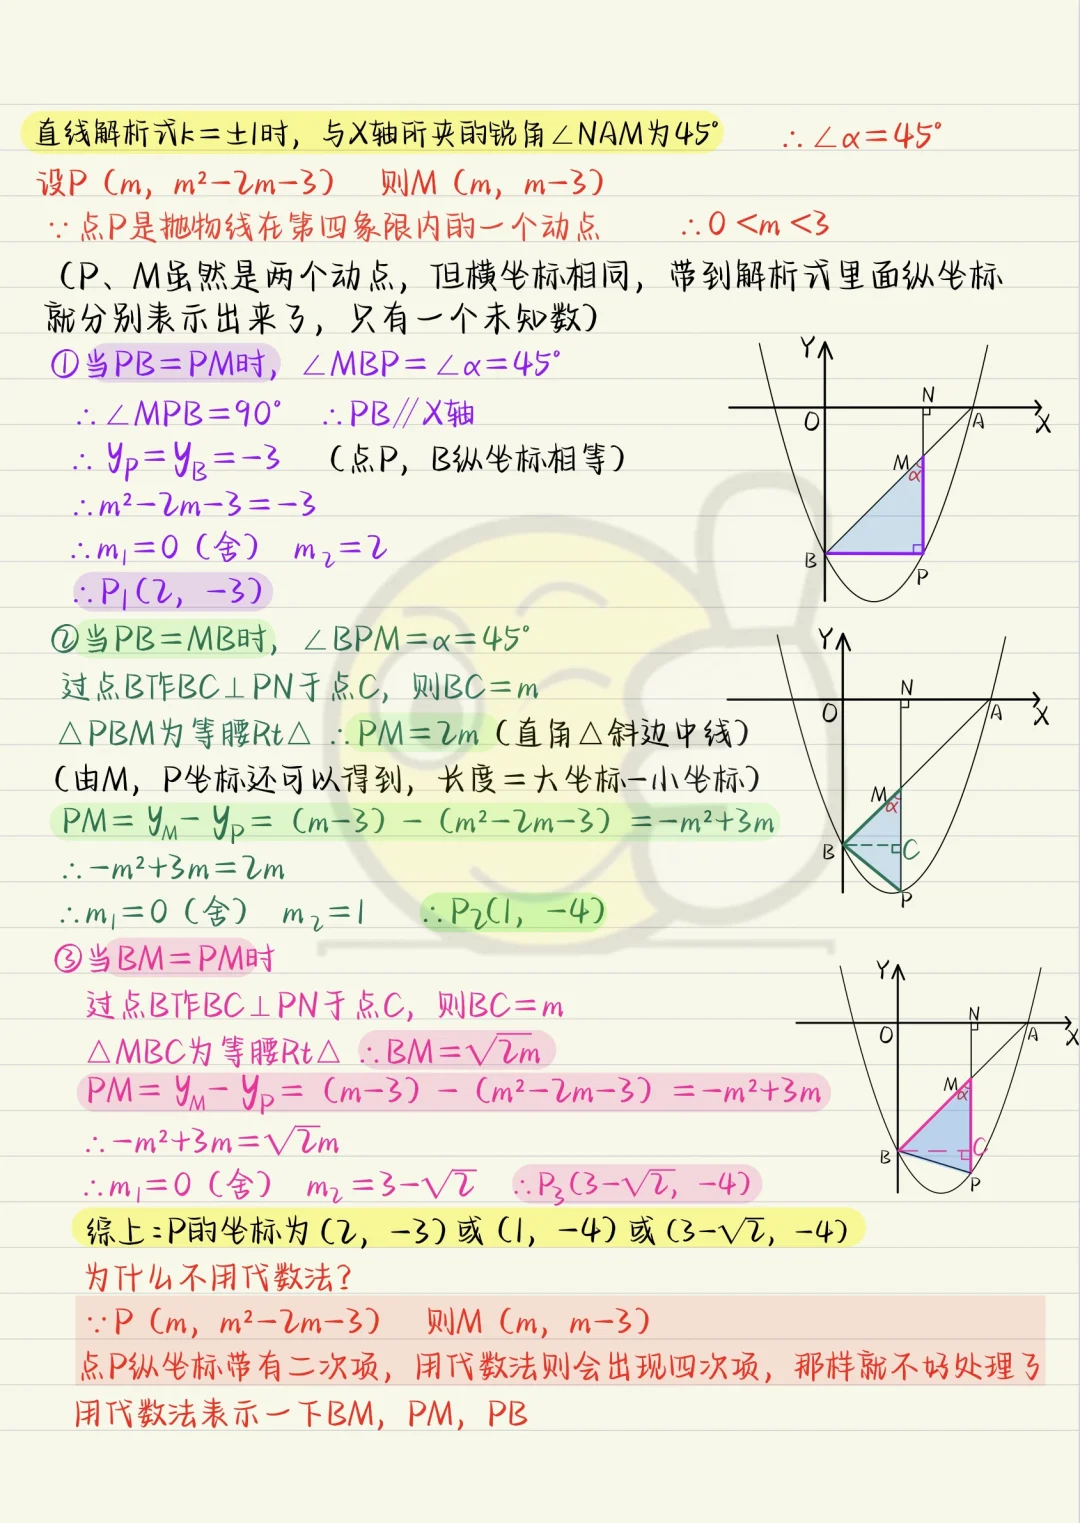 直线解析式k=±1时，与X轴所夹的锐角∠NAM为45° ∴∠α=45°
设P（m，m²-2m-3） 则M（m，m-3）
∵点P是抛物线在第四象限内的一个动点 ∴0<m<3
（P、M虽然是两个动点，但横坐标相同，带到解析式里面纵坐标
就分别表示出来了，只有一个未知数）
①当PB=PM时，∠MBP=∠α=45°
∴∠MPB=90° ∴PB∥X轴
∴y_P=y_B=-3 （点P，B纵坐标相等）
∴m²-2m-3=-3
∴m₁=0（舍） m₂=2
∴P₁(2，-3)
Y
N
O
A
X
M
α
B
P
②当PB=MB时，∠BPM=α=45°
过点B作BC⊥PN于点C，则BC=m
△PBM为等腰Rt△ ∴PM=2m（直角△斜边中线）
（由M，P坐标还可以得到，长度=大坐标-小坐标）
PM=y_M-y_P=（m-3）-（m²-2m-3）=-m²+3m
∴-m²+3m=2m
∴m₁=0（舍） m₂=1 ∴P₂(1，-4)
Y
N
O
A
X
M
α
B
C
P
③当BM=PM时
过点B作BC⊥PN于点C，则BC=m
△MBC为等腰Rt△ ∴BM=√2m
PM=y_M-y_P=（m-3）-（m²-2m-3）=-m²+3m
∴-m²+3m=√2m
∴m₁=0（舍） m₂=3-√2 ∴P₃(3-√2，-4)
Y
N
O
A
X
M
α
B
C
P
综上：P的坐标为(2，-3)或(1，-4)或(3-√2，-4)
为什么不用代数法？
∵P（m，m²-2m-3） 则M（m，m-3）
点P纵坐标带有二次项，用代数法则会出现四次项，那样就不好处理了
用代数法表示一下BM，PM，PB